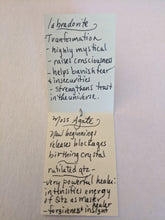 Labradorite -
Tranformation
- highly mystical
- raises consciousness
- helps banish fear
& insecurities
- strengthens trust
in the universe.
Moss Agate -
New beginnings
releases blockages
birthing crystal
rutilated qtz -
very powerful healer
intensifies energy
of qtz as master
healer
forgiveness insight